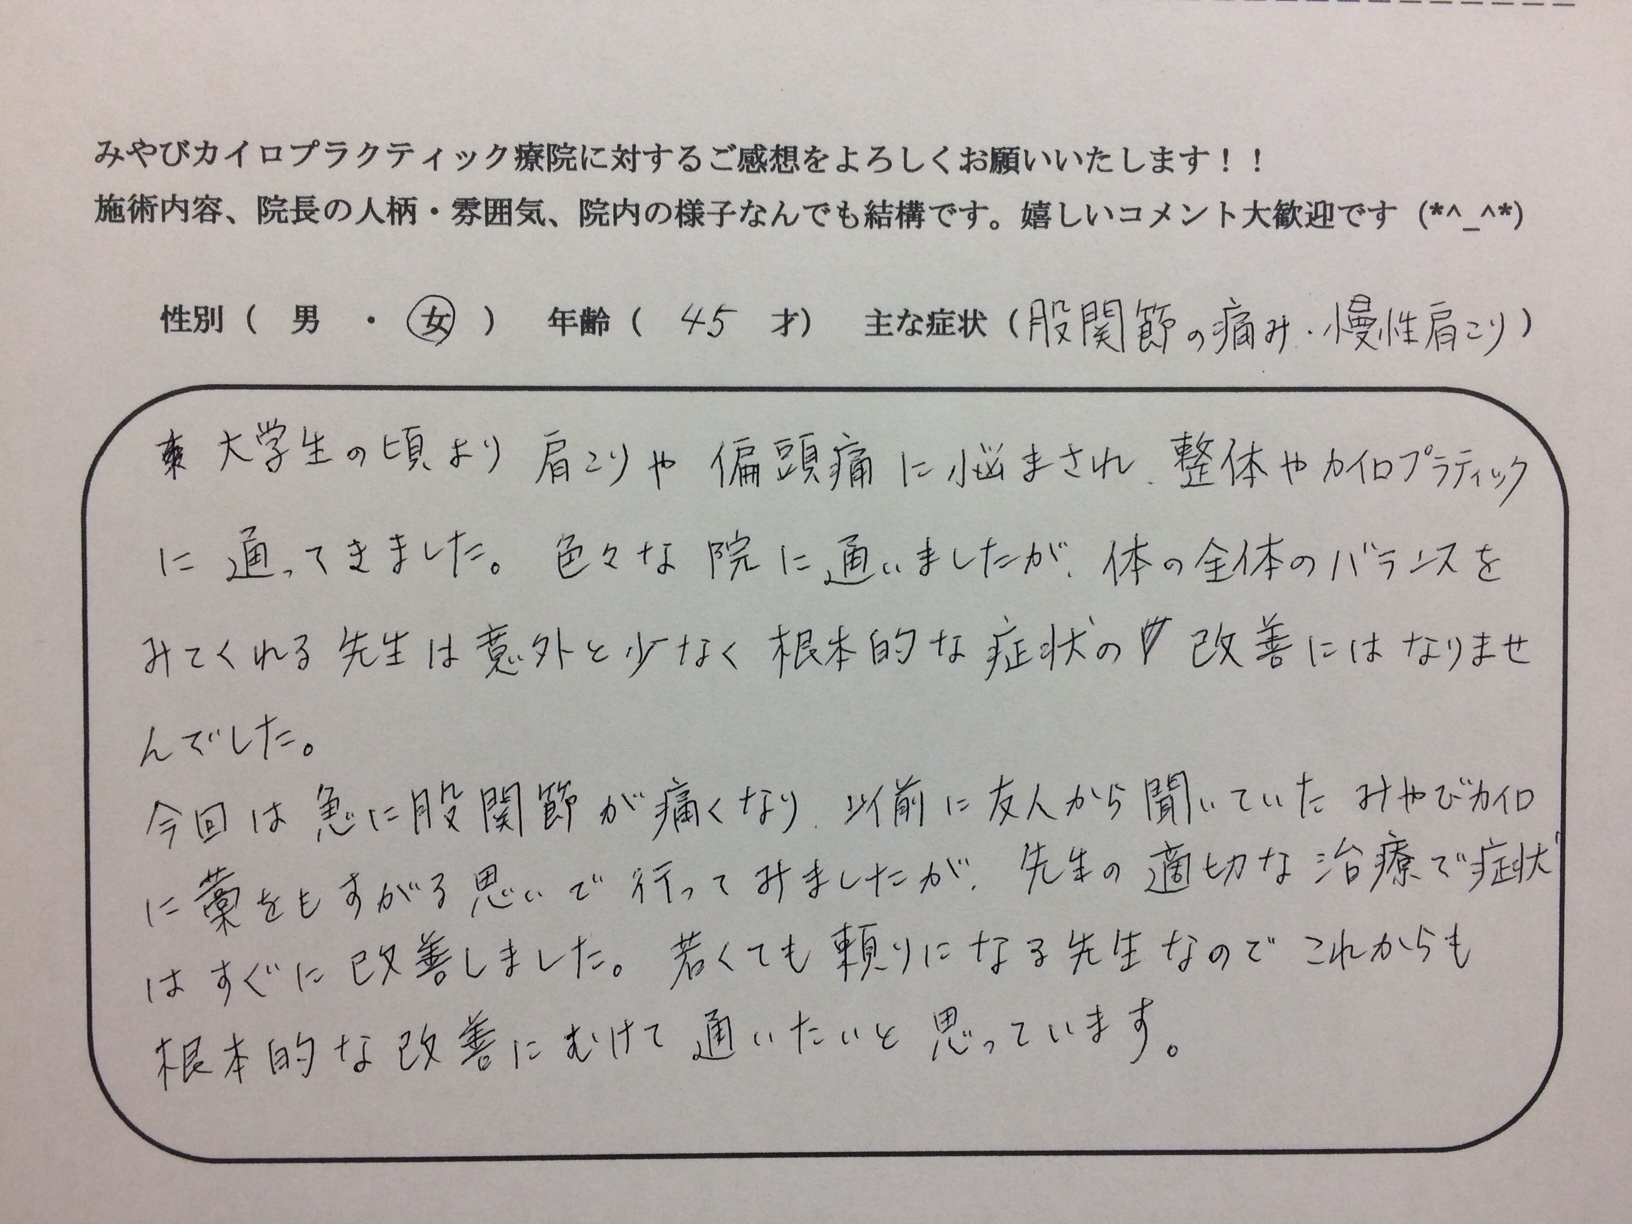 みやびカイロプラクティック療院に対するご感想をよろしくお願いいたします！！
施術内容、院長の人柄・雰囲気、院内の様子なんでも結構です。嬉しいコメント大歓迎です (*^_^*)
性別（ 男 ・ 女 ） 年齢（ 45 才） 主な症状（股関節の痛み・慢性肩こり）
大学生の頃より 肩こりや 偏頭痛に悩まされ、整体やカイロプラティック
に通ってきました。色々な院に通いましたが、体の全体のバランスを
みてくれる先生は意外と少なく根本的な症状の改善にはなりませ
んでした。
今回は急に股関節が痛くなり、以前に友人から聞いていたみやびカイロ
に藁をもすがる思いで行ってみましたが、先生の適切な治療で症状
はすぐに改善しました。若くても頼りになる先生なのでこれからも
根本的な改善にむけて通いたいと思っています。